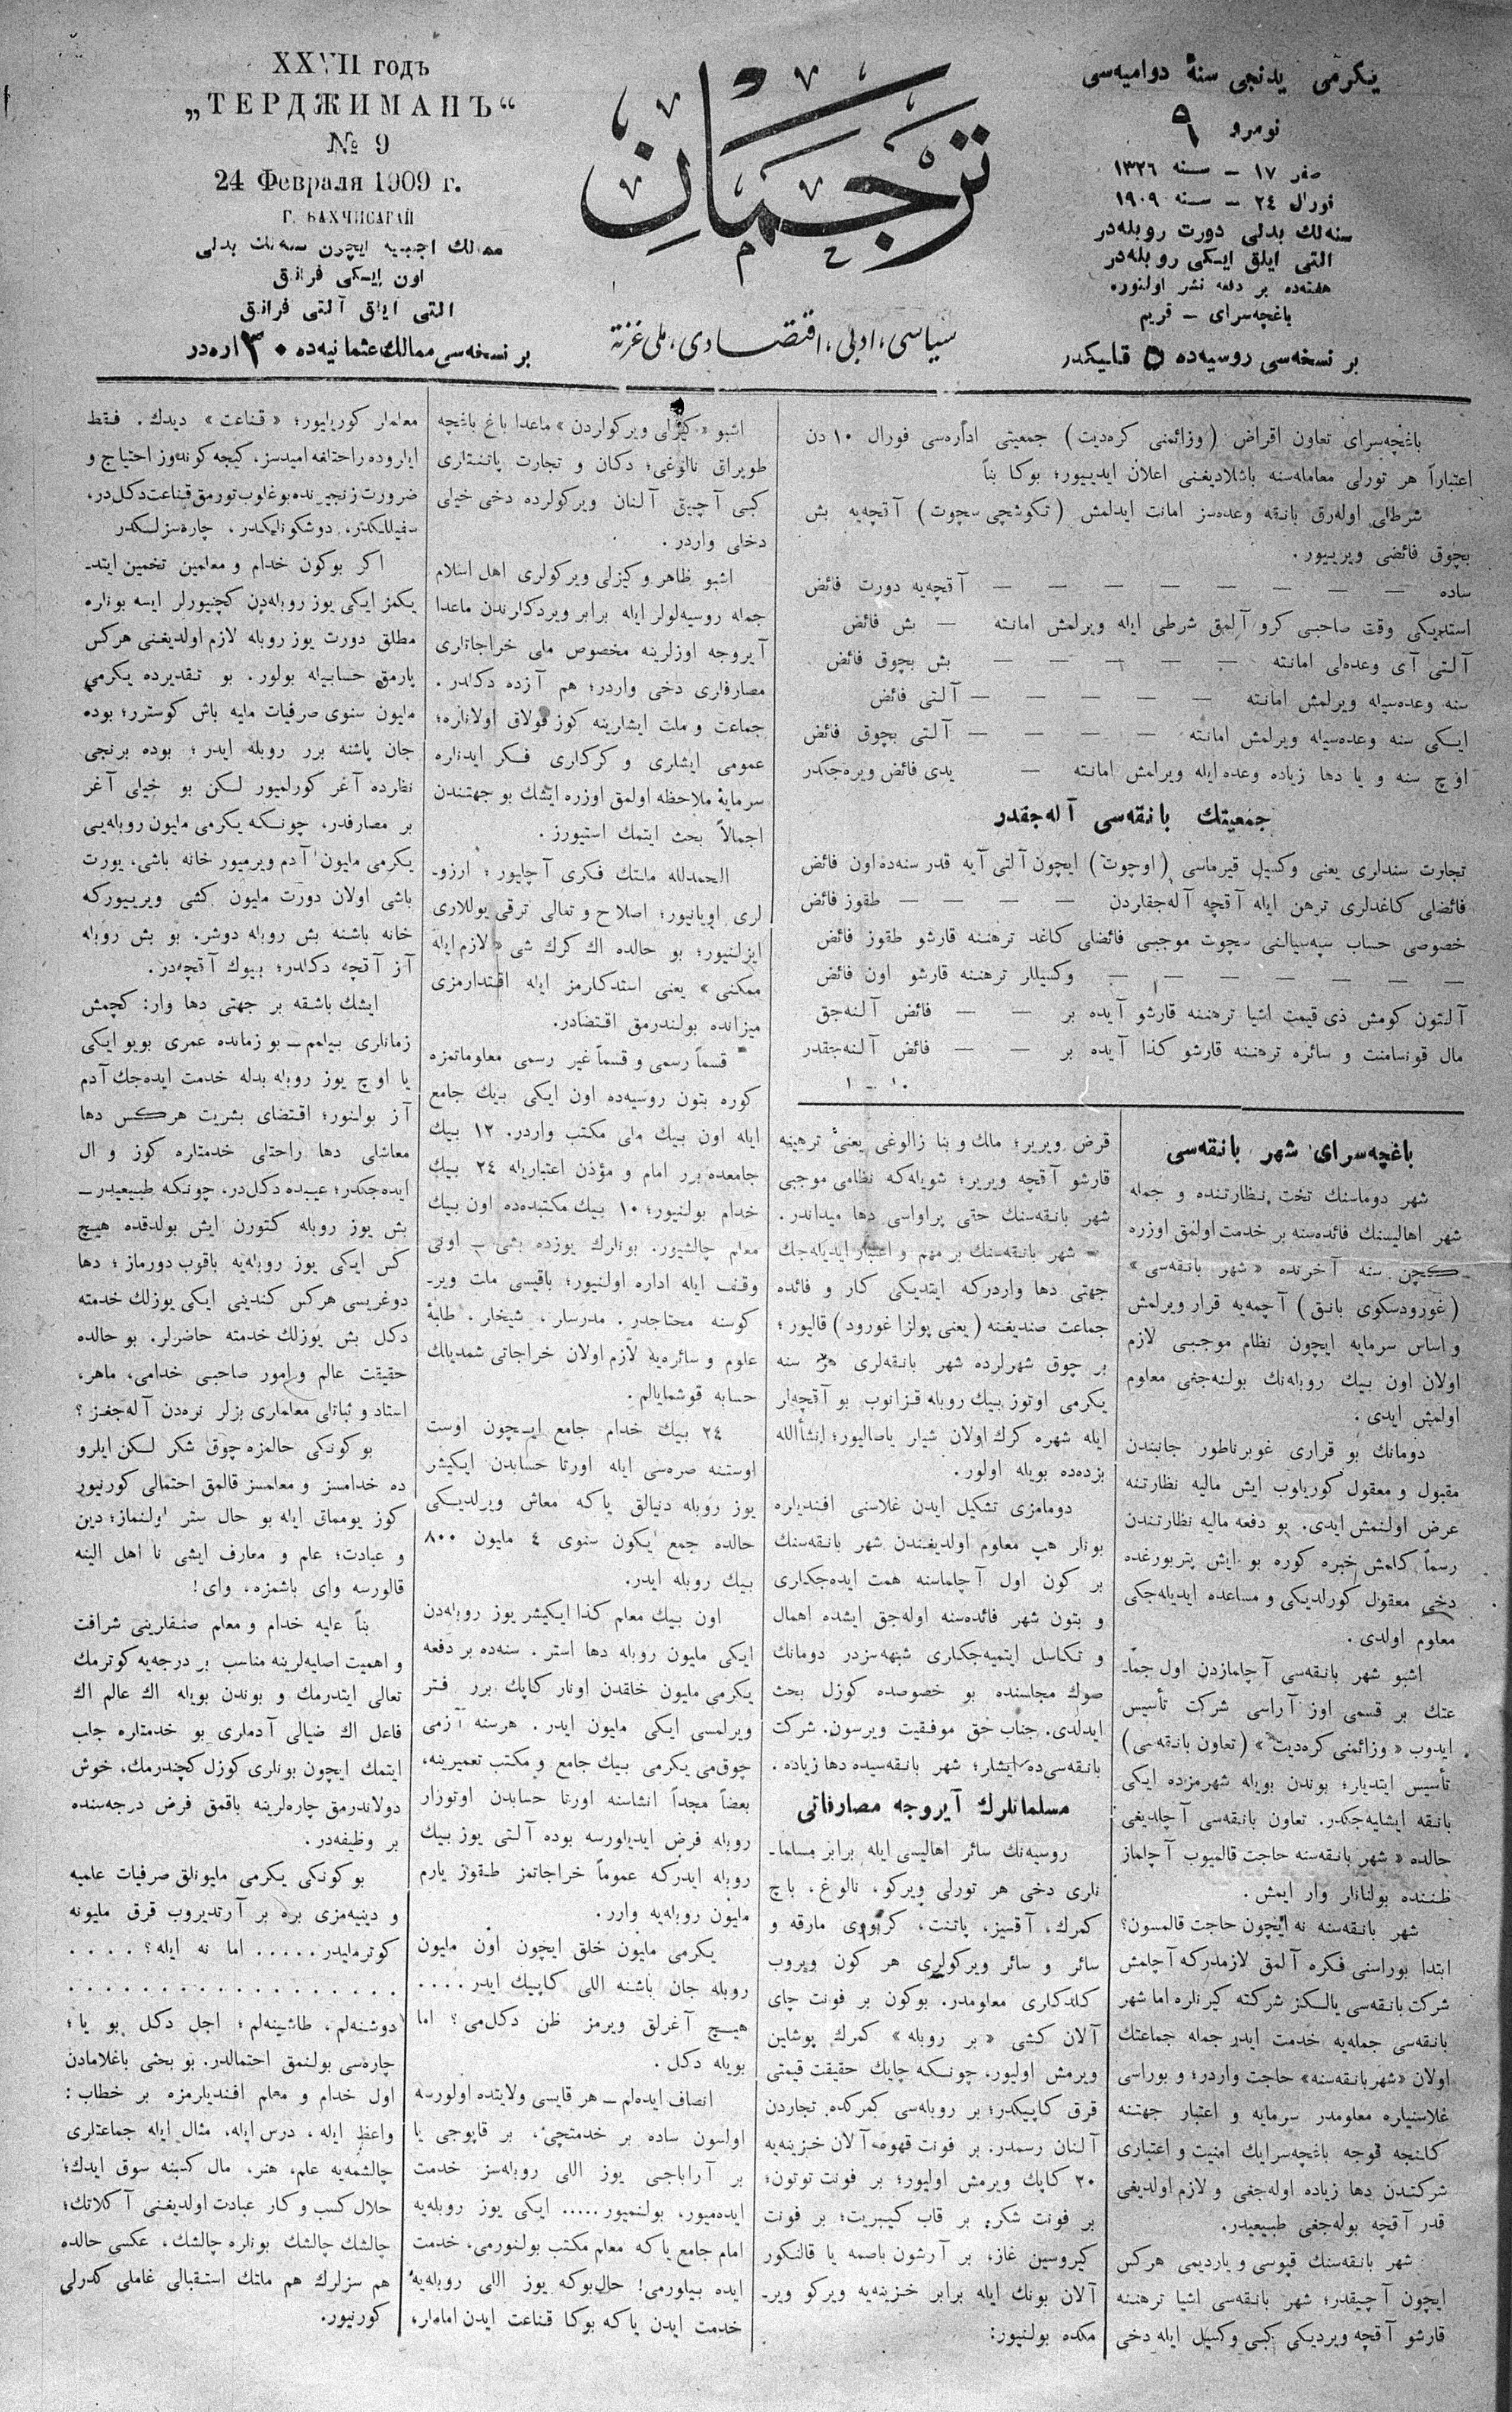 يكرمى يدنجى سنۀ دواميه‌سى
نومرو ٩
صفر ١٧ – سنه ١٣٢٦
فورال ٢٤ – سنه ١٩٠٩
سنه‌لك بدلى دورت روبله‌در
التى ايلق ايكى روبله‌در
هفته‌ده بر دفعه نشر اولنور
باغچه‌سراى – قريم
بر نسخه‌سى روسيه‌ده ٥ قاپيكدر
ترجمان
سياسى، ادبى، اقتصادى، ملى غزته
XXVII годъ
„ТЕРДЖИМАНЪ“
№ 9
24 Февраля 1909 г.
Г. БАХЧИСАРАЙ
ممالك اجنبيه ايچون سنه‌لك بدلى
اون ايكى فرانق
التى ايلق آلتى فرانق
بر نسخه‌سى ممالك عثمانيه‌ده ٣٠ پاره‌در
باغچه‌سراى تعاون اقراض (وزائمنى كره‌ديت) جمعيتى اداره‌سى فورال ١٠ دن
اعتباراً هر تورلى معامله‌سنه باشلاديغنى اعلان ايدييور؛ بوكا بناً
شرطلى اوله‌رق بانقه وعده‌سز امانت ايدلمش (تكوشچى سچوت) آقچه‌يه بش
بچوق فائضى ويرييور.
ساده — — — — — — — — آقچه‌يه دورت فائض
استديكى وقت صاحبى كرو آلمق شرطى ايله ويرلمش امانته — بش فائض
آلتى آى وعده‌لى امانته — — — — — بش بچوق فائض
سنه وعده‌سيله ويرلمش امانته — — — — — آلتى فائض
ايكى سنه وعده‌سيله ويرلمش امانته — — — — آلتى بچوق فائض
اوچ سنه و يا دها زياده وعده ايله ويرلمش امانته — يدى فائض ويره‌جكدر
جمعيتك بانقه‌سى آله‌جقدر
تجارت سندلرى يعنى وكسيل قيرماسى (اوچوت) ايچون آلتى آيه قدر سنه‌ده اون فائض
فائضلى كاغدلرى ترهن ايله آقچه آله‌جقلردن — — — — طقوز فائض
خصوصى حساب سپه‌سيالنى سچوت موجبى فائضلى كاغد ترهننه قارشو طقوز فائض
— — — — — — — وكسيللر ترهننه قارشو اون فائض
آلتون كومش ذى قيمت اشيا ترهننه قارشو آيده بر — — فائض آلنه‌جق
مال قونسامنت و سائره ترهننه قارشو كذا آيده بر — — فائض آلنه‌جقدر
١٠ – ١
باغچه‌سراى شهر بانقه‌سى
شهر دوماسنك تخت نظارتنده و جمله
شهر اهاليسنك فائده‌سنه بر خدمت اولمق اوزره
كچن سنه آخرنده «شهر بانقه‌سى»
(غورودسكوى بانق) آچمه‌يه قرار ويرلمش
و اساس سرمايه ايچون نظام موجبى لازم
اولان اون بيك روبله‌نك بولنه‌جغى معلوم
اولمش ايدى.
دومانك بو قرارى غوبرناطور جانبندن
مقبول و معقول كوريلوب ايش ماليه نظارتنه
عرض اولنمش ايدى. بو دفعه ماليه نظارتندن
رسماً كلمش خبره كوره بو ايش پتربورغده
دخى معقول كورلديكى و مساعده ايديله‌جكى
معلوم اولدى.
اشبو شهر بانقه‌سى آچلمازدن اول جمـ
عتك بر قسمى اوز آراسى شركت تأسيس
ايدوب «وزائمنى كره‌ديت» (تعاون بانقه‌سى)
تأسيس ايتديلر؛ بوندن بويله شهرمزده ايكى
بانقه ايشليه‌جكدر. تعاون بانقه‌سى آچلديغى
حالده «شهر بانقه‌سنه حاجت قالميوب آچلماز
ظننده بولنانلر وار ايمش.
شهر بانقه‌سنه نه ايچون حاجت قالمسون؟
ابتدا بوراسنى فكره آلمق لازمدركه آچلمش
شركت بانقه‌سى يالكز شركته كيرنلره اما شهر
بانقه‌سى جمله‌يه خدمت ايدر جمله جماعتك
اولان «شهر بانقه‌سنه» حاجت واردر؛ و بوراسى
غلاسنيلره معلومدر سرمايه و اعتبار جهتنه
كلنجه قوجه باغچه‌سرايك امنيت و اعتبارى
شركتدن دها زياده اوله‌جغى و لازم اولديغى
قدر آقچه بوله‌جغى طبيعيدر.
شهر بانقه‌سنك قپوسى و يارديمى هركس
ايچون آچيقدر؛ شهر بانقه‌سى اشيا ترهننه
قارشو آقچه ويرديكى كبى وكسيل ايله دخى
قرض ويرير؛ ملك و بنا زالوغى يعنى ترهينه
قارشو آقچه ويرير؛ شويله‌كه نظامى موجبى
شهر بانقه‌سنك حتى پراواسى دها ميداندر.
شهر بانقه‌سنك بر مهم و اعتبار ايديله‌جك
جهتى دها واردركه ايتديكى كار و فائده
جماعت صنديغنه (يعنى پولزا غورود) قاليور؛
بر چوق شهرلرده شهر بانقه‌لرى هر سنه
يكرمى اوتوز بيك روبله قزانوب بو آقچه‌لر
ايله شهره كرك اولان شيلر ياصاليور؛ انشأالله
بزده‌ده بويله اولور.
دومامزى تشكيل ايدن غلاسنى افنديلره
بونلر هپ معلوم اولديغندن شهر بانقه‌سنك
بر كون اول آچلماسنه همت ايده‌جكلرى
و بتون شهر فائده‌سنه اوله‌جق ايشده اهمال
و تكاسل ايتميه‌جكلرى شبهه‌سزدر دومانك
صوك مجلسنده بو خصوصده كوزل بحث
ايدلدى. جناب حق موفقيت ويرسون. شركت
بانقه‌سى‌ده ايشلر؛ شهر بانقه‌سيده دها زياده.
مسلمانلرك آيروجه مصارفاتى
روسيه‌نك سائر اهاليسى ايله برابر مسلما-
نلرى دخى هر تورلى ويركو، نالوغ، باج
كمرك، آقسيز، پاتنت، كربووى مارقه و
سائر و سائر ويركولرى هر كون ويروب
كلدكلرى معلومدر. بوكون بر فونت چاى
آلان كشى «بر روبله» كمرك پوشلين
ويرمش اوليور، چونكه چايك حقيقت قيمتى
قرق كاپيكدر؛ بر روبله‌سى كمركده تجاردن
آلنان رسمدر. بر فونت قهوه آلان خزينه‌يه
٢٠ كاپك ويرمش اوليور؛ بر فونت توتون؛
بر فونت شكر؛ بر قاب كيبريت؛ بر فونت
كيروسين غاز، بر آرشون باصمه يا قالنكور
آلان بونك ايله برابر خزينه‌يه ويركو ويرـ
مكده بولنيور:
اشبو «كيزلى ويركولردن» ماعدا باغ باغچه
طوپراق نالوغى؛ دكان و تجارت پاتنتلرى
كبى آچيق آلنان ويركولرده دخى خيلى
دخلى واردر.
اشبو ظاهر و كيزلى ويركولرى اهل اسلام
جمله روسيه‌لولر ايله برابر ويردكلرندن ماعدا
آيروجه اوزلرينه مخصوص ملى خراجاتلرى
مصارفلرى دخى واردر؛ هم آزده دكلدر.
جماعت و ملت ايشلرينه كوز قولاق اولانلره؛
عمومى ايشلرى و كركلرى فكر ايدنلره
سرمايۀ ملاحظه اولمق اوزره ايشك بو جهتندن
اجمالاً بحث ايتمك استيورز.
الحمدلله ملتك فكرى آچليور؛ ارزو-
لرى اويانيور؛ اصلاح و تعالى ترقى يوللارى
ايزلنيور؛ بو حالده اك كرك شى «لازم ايله
ممكنى» يعنى استدكلرمز ايله اقتدارمزى
ميزانده بولندرمق اقتضادر.
قسماً رسمى و قسماً غير رسمى معلوماتمزه
كوره بتون روسيه‌ده اون ايكى بيك جامع
ايله اون بيك ملى مكتب واردر. ١٢ بيك
جامعده برر امام و مؤذن اعتباريله ٢٤ بيك
خدام بولنيور؛ ١٠ بيك مكتبده‌ده اون بيك
معلم چالشيور. بونلرك يوزده بشى – اونى
وقف ايله اداره اولنيور؛ باقيسى ملت ويرـ
كوسنه محتاجدر. مدرسلر، شيخلر، طلبۀ
علوم و سائره‌يه لازم اولان خراجاتى شمديلك
حسابه قوشمايالم.
٢٤ بيك خدام جامع ايچون اوست
اوستنه صره‌سى ايله اورتا حسابدن ايكيشر
يوز روبله دنيالق ياكه معاش ويرلديكى
حالده جمع يكون سنوى ٤ مليون ٨٠٠
بيك روبله ايدر.
اون بيك معلم كذا ايكيشر يوز روبله‌دن
ايكى مليون روبله دها استر. سنه‌ده بر دفعه
يكرمى مليون خلقدن اونلر كاپك برر فتر
ويرلمسى ايكى مليون ايدر. هرسنه آزمى
چوق‌مى يكرمى بيك جامع و مكتب تعميرينه،
بعضاً مجدداً انشاسنه اورتا حسابدن اوتوزار
روبله فرض ايديلورسه بوده آلتى يوز بيك
روبله ايدركه عموماً خراجاتمز طقوز يارم
مليون روبله‌يه وارر.
يكرمى مليون خلق ايچون اون مليون
روبله جان باشنه اللى كاپيك ايدر....
هيچ آغرلق ويرمز ظن دكل‌مى؟ اما
بويله دكل.
انصاف ايده‌لم – هر قايسى ولايتده اولورسه
اولسون ساده بر خدمتچى، بر قاپوجى يا
بر آراباجى يوز اللى روبله‌سز خدمت
ايده‌ميور، بولنميور..... ايكى يوز روبله‌يه
امام جامع ياكه معلم مكتب بولنورمى، خدمت
ايده بيلورمى! حال‌بوكه يوز اللى روبله‌يه
خدمت ايدن ياكه بوكا قناعت ايدن امام‌لر،
معلملر كوريليور؛ «قناعت» ديدك. فقط
ايلروده راحتلغه اميدسز، كيجه كوندوز احتياج و
ضرورت زنجيرنده بوغلوب تورمق قناعت دكل‌در،
سفيللكدر، دوشكونلكدر، چاره‌سزلكدر
اكر بوكون خدام و معلمين تخمين ايتد-
يكمز ايكى يوز روبله‌دن كچنيورلر ايسه بونلره
مطلق دورت يوز روبله لازم اولديغنى هركس
پارمق حسابيله بولور. بو تقديرده يكرمى
مليون سنوى صرفيات مليه باش كوسترر؛ بوده
جان باشنه برر روبله ايدر؛ بوده برنجى
نظرده آغر كورلميور لكن بو خيلى آغر
بر مصارفدر، چونكه يكرمى مليون روبله‌يى
يكرمى مليون آدم ويرميور خانه باشى، يورت
باشى اولان دورت مليون كشى ويرييوركه
خانه باشنه بش روبله دوشر. بو بش روبله
آز آقچه دكلدر؛ بيوك آقچه‌در.
ايشك باشقه بر جهتى دها وار: كچمش
زمانلرى بيلمم – بو زمانده عمرى بويو ايكى
يا اوچ يوز روبله بدله خدمت ايده‌جك آدم
آز بولنور؛ اقتضاى بشريت هركس دها
معاشلى دها راحتلى خدمتلره كوز و ال
ايده‌جكدر؛ عيبده دكل‌در، چونكه طبيعيدر –
بش يوز روبله كتورن ايش بولدقده هيچ
كس ايكى يوز روبله‌يه باقوب دورماز؛ دها
دوغريسى هركس كندينى ايكى يوزلك خدمته
دكل بش يوزلك خدمته حاضرلر. بو حالده
حقيقت عالم و امور صاحبى خدامى، ماهر،
استاد و ثباتلى معلملرى بزلر نره‌دن آله‌جغز؟
بوكونكى حالمزه چوق شكر لكن ايلرو
ده خدامسز و معلمسز قالمق احتمالى كورنيور
كوز يومماق ايله بو حال ستر اولنماز؛ دين
و عبادت؛ علم و معارف ايشى نا اهل الينه
قالورسه واى باشمزه، واى!
بناً عليه خدام و معلم صنفلرينى شرافت
و اهميت اصليه‌لرينه مناسب بر درجه‌يه كوترمك
تعالى ايتدرمك و بوندن بويله اك عالم اك
فاعل اك ضيالى آدملرى بو خدمتلره جلب
ايتمك ايچون بونلرى كوزل كچندرمك، خوش
دولاندرمق چاره‌لرينه باقمق فرض درجه‌سنده
بر وظيفه‌در.
بوكونكى يكرمى مليونلق صرفيات علميه
و دينيه‌مزى بره بر آرتديروب قرق مليونه
كوترمليدر..... اما نه ايله؟ ....
. . . . . . . . . . . . . . . .
دوشنه‌لم، طاشينه‌لم؛ اجل دكل بو يا؛
چاره‌سى بولنمق احتمالدر. بو بحثى باغلامادن
اول خدام و معلم افنديلرمزه بر خطاب:
واعظ ايله، درس ايله، مثال ايله جماعتلرى
چالشمه‌يه علم، هنر، مال كسبنه سوق ايدك؛
حلال كسب و كار عبادت اولديغنى آكلاتك؛
چالشك چالشك بونلره چالشك، عكسى حالده
هم سزلرك هم ملتك استقبالى غاملى كدرلى
كورنيور.